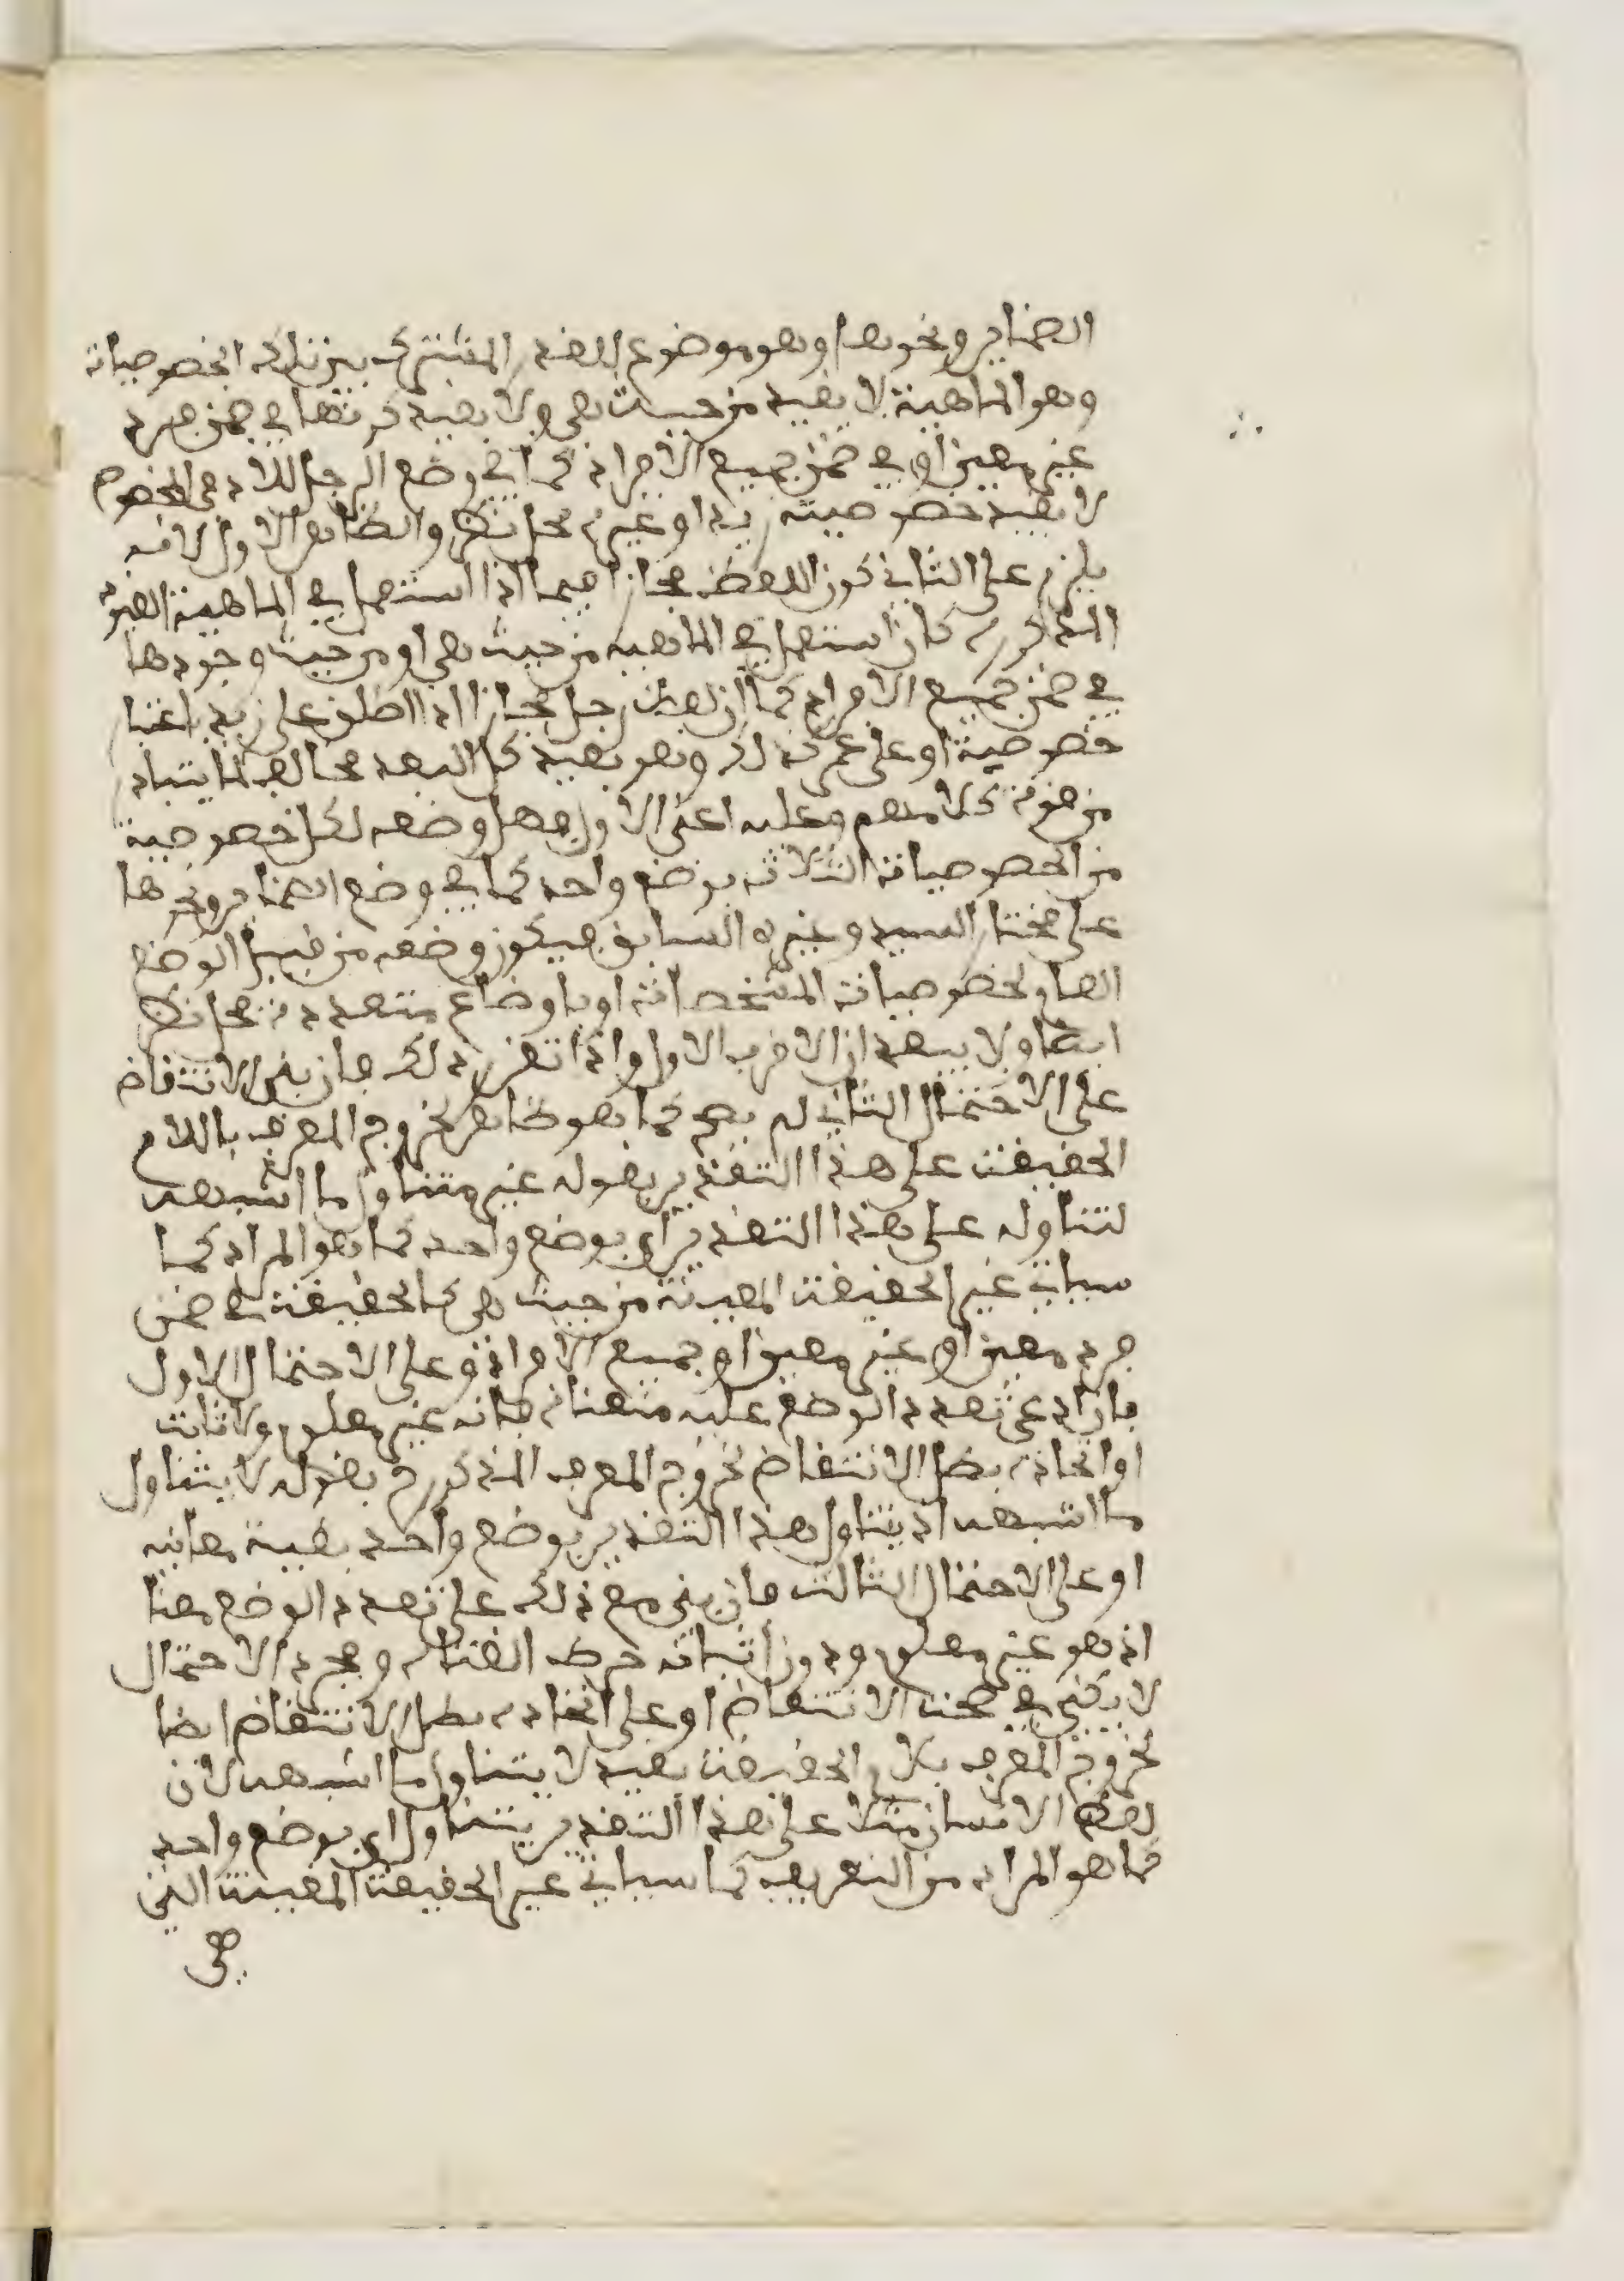 الضماير ونحوها او هو موضوع للقدر المشترك بين تلك الخصوصيات
وهو الماهية لا بقيد من حيث هي ولا بقيد كونها في ضمن فرد
غير معين او في ضمن جميع الافراد كما في وضع الرجل للادمي المخصوص
لا بقيد خصوصية زيد او غيره محل نظر والظاهر الاول لانه
يلزم على الثاني كون اللفظ مجازا فيما اذا استعمل في الماهية بالقيود
المذكورة كان استعمل في الماهية من حيث هي او من حيث وجودها
في ضمن جميع الافراد كما ان لفظ رجل مجاز اذا اطلق على زيد باعتبار
خصوصية او على عمرو كذلك وهو بعيد كل البعد مخالف لما يتبادر
من قوة كلامهم وعليه اعني الاول فهل وضعه لكل خصوصية
من الخصوصيات الثلاثة بوضع واحد كما في وضع الضماير ونحوها
على مختار السيد وغيره السابق فيكون وضعه من قبيل الوضع
العام لخصوصيات المشخصات او باوضاع متعددة محل نظر
ايضا ولا يبعد ان الاقرب الاول واذا تقرر ذلك فان بني الانتقاض
على الاحتمال الثاني لم يصح كما هو ظاهر لخروج المعرف باللام
الحقيقة على هذا التقدير بقوله غير متناول ما اشبهه
لتناوله على هذا التقدير اي بوضع واحد كما هو المراد كما
سياتي غير الحقيقة المعينة من حيث هي كالحقيقة في ضمن
فرد معين او غير معين او جميع الافراد او على الاحتمال الاول
فان ادعى تعدد الوضع عليه منعناه فانه غير معلوم ولا ثابت
او اتحاده بطل الانتقاض لخروج المعرف المذكور ح بقوله لا يتناول
ما اشبهه اذ يتناول هذا التقدير بوضع واحد بقية معانيه
او على الاحتمال الثالث فان بني مع ذلك على تعدد الوضع معنا
اذ هو غير معلوم ودون اثباته خرط القتاد ومجرد الاحتمال
لا يكفي في صحة الانتقاض او على اتحاده بطل الانتقاض ايضا
لخروج المعرف بلام الحقيقة بقيد لا يتناول ما اشبهه لان
لفظ الانسان مثلا على هذا التقدير يتناول اي بوضع واحد
كما هو المراد من التعريف كما سياتي غير الحقيقة المعينة التي
هي